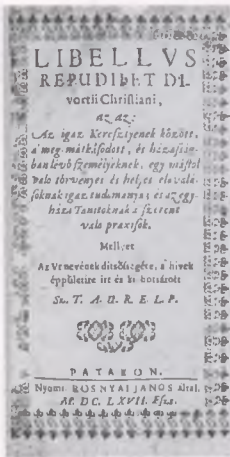 LIBELLVS
REPUDII ET DI-
vortii Chriſtiani,
az az:
Az igaz Kereſztyenek között,
a' meg-mátkáſodott, és házaſság-
ban lévö ſzeméllyeknek, egy máſtol
valo törvenyes és hellyes elválá-
ſoknak igaz tudomanya; és az egy-
háza Tanitoknak a ſzerent
valo praxiſok.
Mellyet
Az Ur nevének ditsöſségére, a' hivek
éppületire irt és ki botsátott
Sz. T. A. U. R. E. L. P.
PATAKON,
Nyomt. ROSNYAI JANOS által,
M. DC. LXVII. Eſzt.